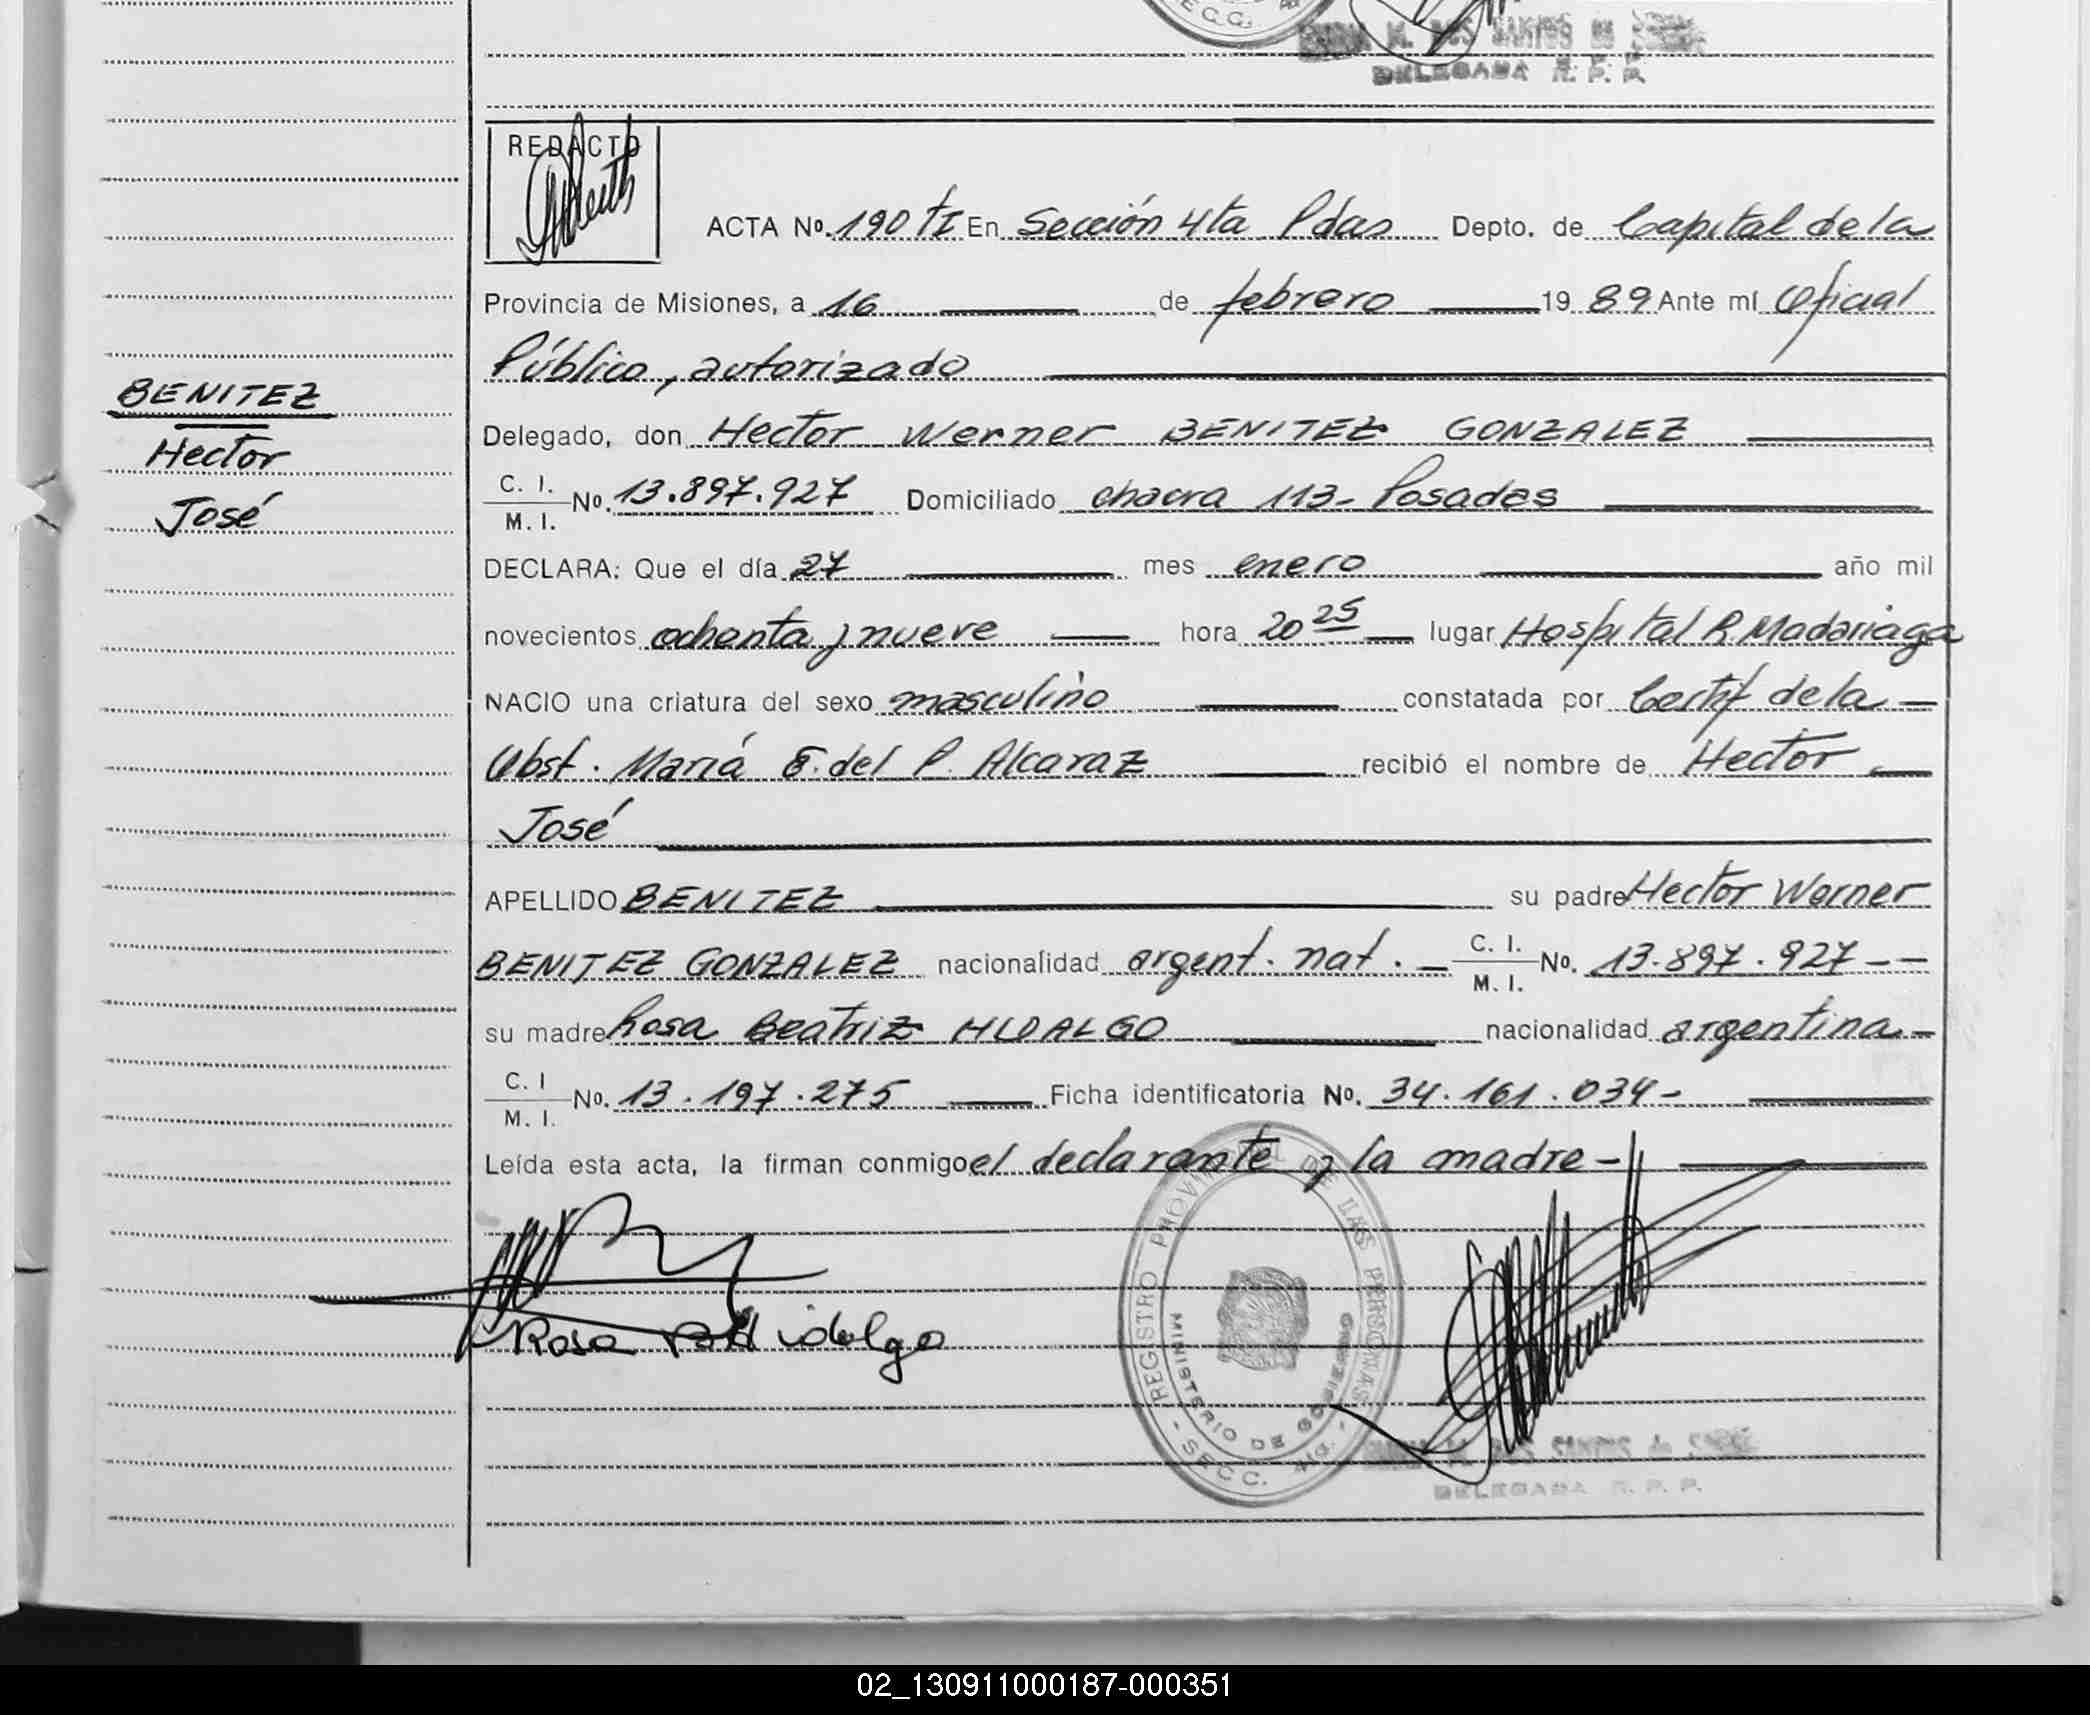 SECC.
M. DOS SANTOS de
DELEGADA R. P. P.
REDACTO
ACTA Nº. 190 tI En Sección 4ta Pdas Depto. de Capital de la
Provincia de Misiones, a 16 de febrero 19 89 Ante mí Oficial
Público, autorizado
BENITEZ
Hector
José
Delegado, don Hector Werner BENITEZ GONZALEZ
C. I.
M. I. Nº. 13.897.927 Domiciliado chacra 113- Posadas
DECLARA: Que el día 27 mes enero año mil
novecientos ochenta y nueve hora 20 25 lugar Hospital R. Madariaga
NACIO una criatura del sexo masculino constatada por Certif de la
Obst. María E. del P. Alcaraz recibió el nombre de Hector
José
APELLIDO BENITEZ su padre Hector Werner
BENITEZ GONZALEZ nacionalidad argent. nat. C. I.
M. I. Nº. 13.897.927
su madre Rosa Beatriz HIDALGO nacionalidad argentina
C. I
M. I. Nº. 13.197.275 Ficha identificatoria Nº. 34.161.034-
Leída esta acta, la firman conmigo el declarante y la madre-
Rosa B Hidalgo
REGISTRO PROVINCIAL DE LAS PERSONAS
MINISTERIO DE GOBIERNO
- SECC. 4ta. -
M. DOS SANTOS de
DELEGADA R. P. P.
02_130911000187-000351